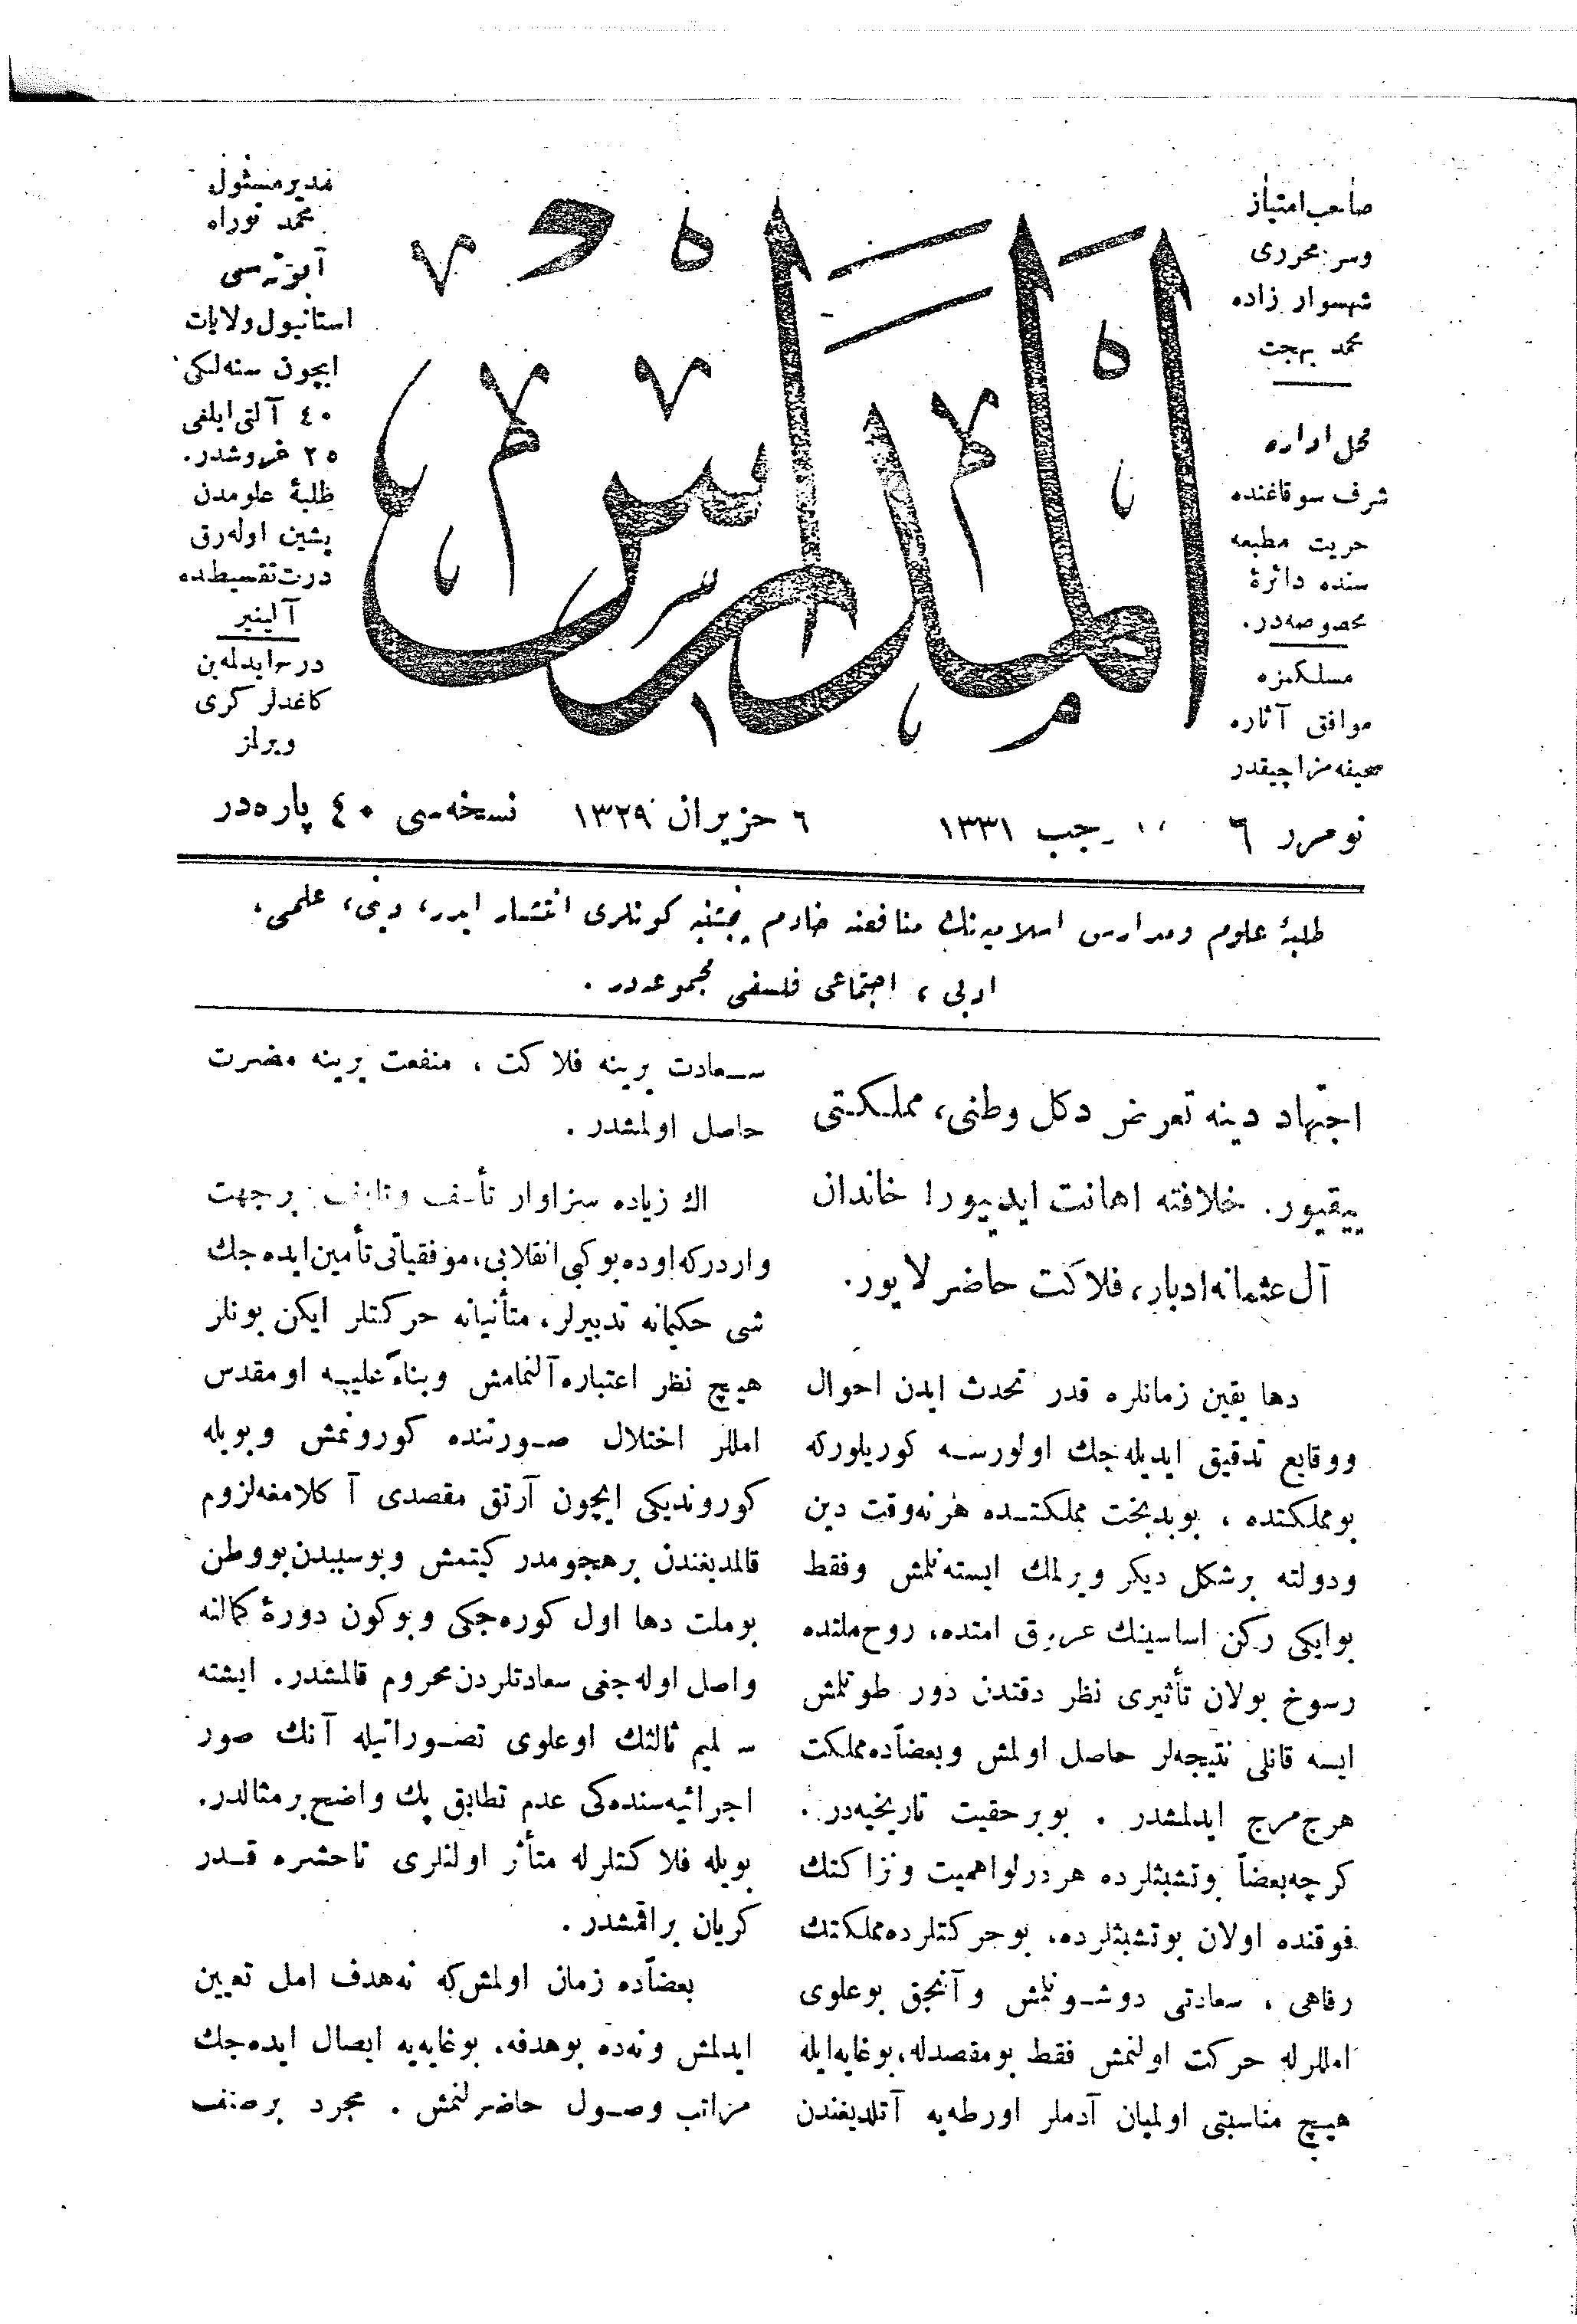 صاحب امتیاز
وسر محرری
شهسوار زاده
محمد بهجت
محل اداره
شرف سوقاغنده
حریت مطبعه
سنده دائرهٔ
مخصوصه‌در.
مسلکمزه
موافق آثاره
صحیفه‌مز اچیقدر
المدارس
مدیر مسئول
محمد نوراه
آبونه‌سی
استانبول ولایات
ایچون سنه‌لکی
٤٠ آلتی ایلغی
٢٥ غروشدر.
طلبهٔ علومدن
پشین اوله‌رق
درت تقسیطده
آلینیر
درج ایدلمه‌ین
کاغدلر کری
ویرلمز
نومرو ٦
رجب ١٣٣١
٦ حزیران ١٣٢٩
نسخه‌سی ٤٠ پاره‌در
طلبهٔ علوم ومدارس اسلامیه‌نك منافعنه خادم پنجشنبه کونلری انتشار ایدر، دینی، علمی،
ادبی، اجتماعی فلسفی مجموعه‌در.
اجتهاد دینه تعرض دکل وطنی، مملکتی
ییقیور. خلافته اهانت ایدییور! خاندان
آل عثمانه ادبار، فلاکت حاضرلایور.
دها یقین زمانلره قدر تحدث ایدن احوال
ووقایع تدقیق ایدیله‌جك اولورسه کوریلورکه
بومملکتده ، بوبدبخت مملکتده هرنه‌وقت دین
ودولته برشکل دیکر ویرلمك ایسته‌نلمش وفقط
بوایکی رکن اساسینك عریق امتده، روح ملتده
رسوخ بولان تأثیری نظر دقتدن دور طوتلمش
ایسه قانلی نتیجه‌لر حاصل اولمش وبعضاًده مملکت
هرج مرج ایدلمشدر . بوبر حقیقت تاریخیه‌در .
کرچه بعضاً بوتشبثلرده هر درلو اهمیت ونزاکتك
فوقنده اولان بوتشبثلرده، بوحرکتلرده مملکتك
رفاهی ، سعادتی دوشونلمش و آنجق بوعلوی
امللرله حرکت اولنمش فقط بومقصدله، بوغایه‌ایله
هیچ مناسبتی اولمیان آدملر اورطه‌یه آتلدیغندن
سعادت یرینه فلاکت ، منفعت یرینه مضرت
حاصل اولمشدر .
اك زیاده سزاوار تأسف برجهت
واردرکه اوده بوکبی انقلابی، موفقیاتی تأمین ایده‌جك
شی حکیمانه تدبیرلر، متأنیانه حرکتلر ایکن بونلر
هیچ نظر اعتباره آلنمامش وبناءً علیه او مقدس
امللر اختلال صورتنده کورونمش وبویله
کوروندیکی ایچون آرتق مقصدی آکلامغه لزوم
قالمدیغندن برهجومدر کیتمش وبوسببدن بووطن
بوملت دها اول کوره‌جکی وبوکون دورهٔ کمالنه
واصل اوله‌جغی سعادتلردن محروم قالمشدر. ایشته
سلیم ثالثك اوعلوی تصوراتیله آنك صور
اجرائیه‌سنده‌کی عدم تطابق پك واضح برمثالدر.
بویله فلاکتلرله متأثر اولنلری تاحشره قدر
کریان براقمشدر.
بعضاًده زمان اولمش‌که نه‌هدف امل تعیین
ایدلمش ونه‌ده بوهدفه، بوغایه‌یه ایصال ایده‌جك
مراتب وصول حاضرلنمش . مجرد برصنف